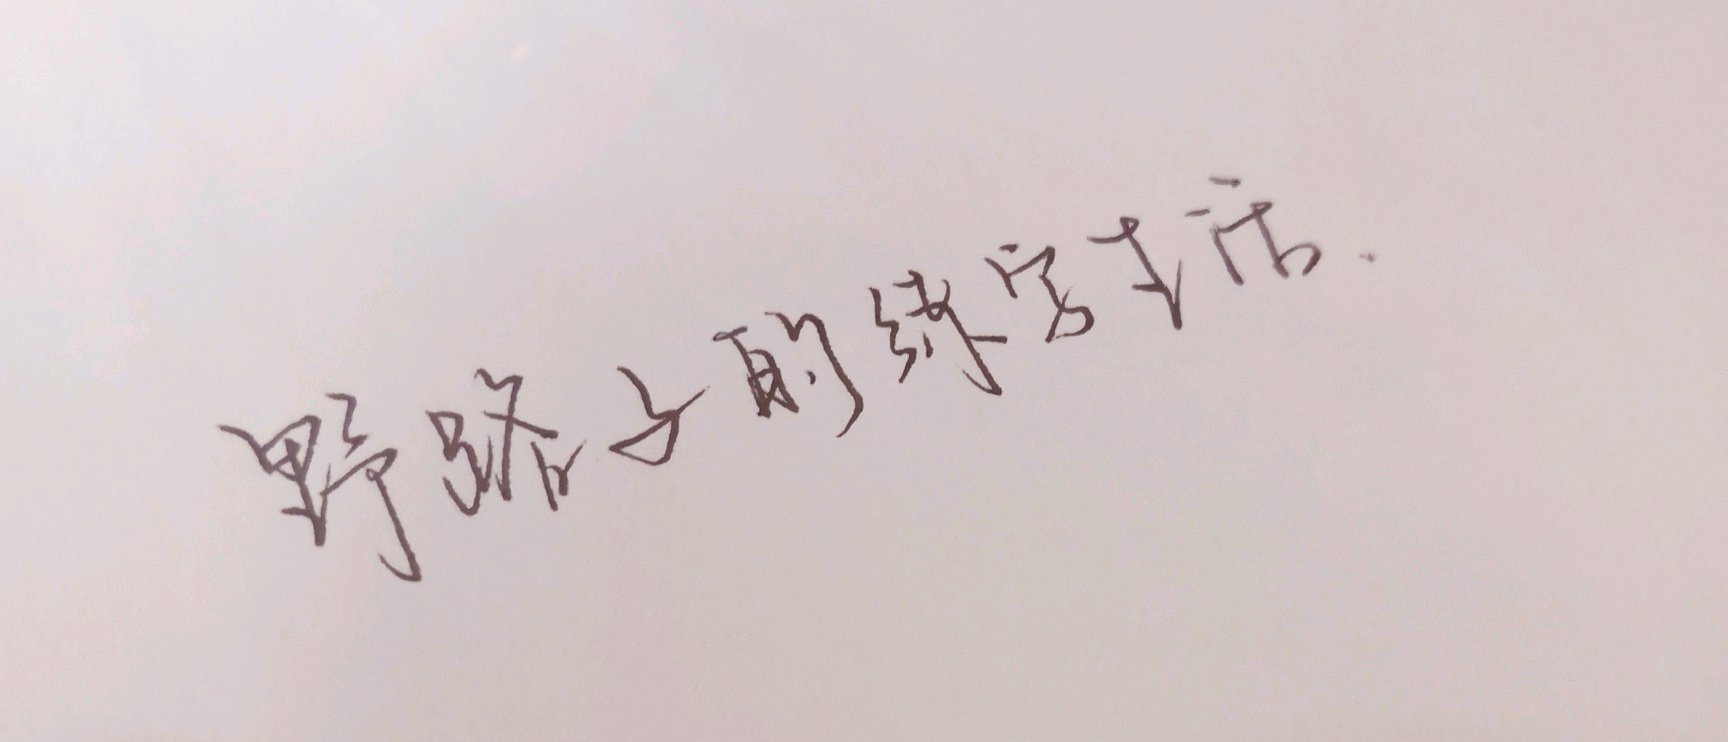 野路子的练字生活.